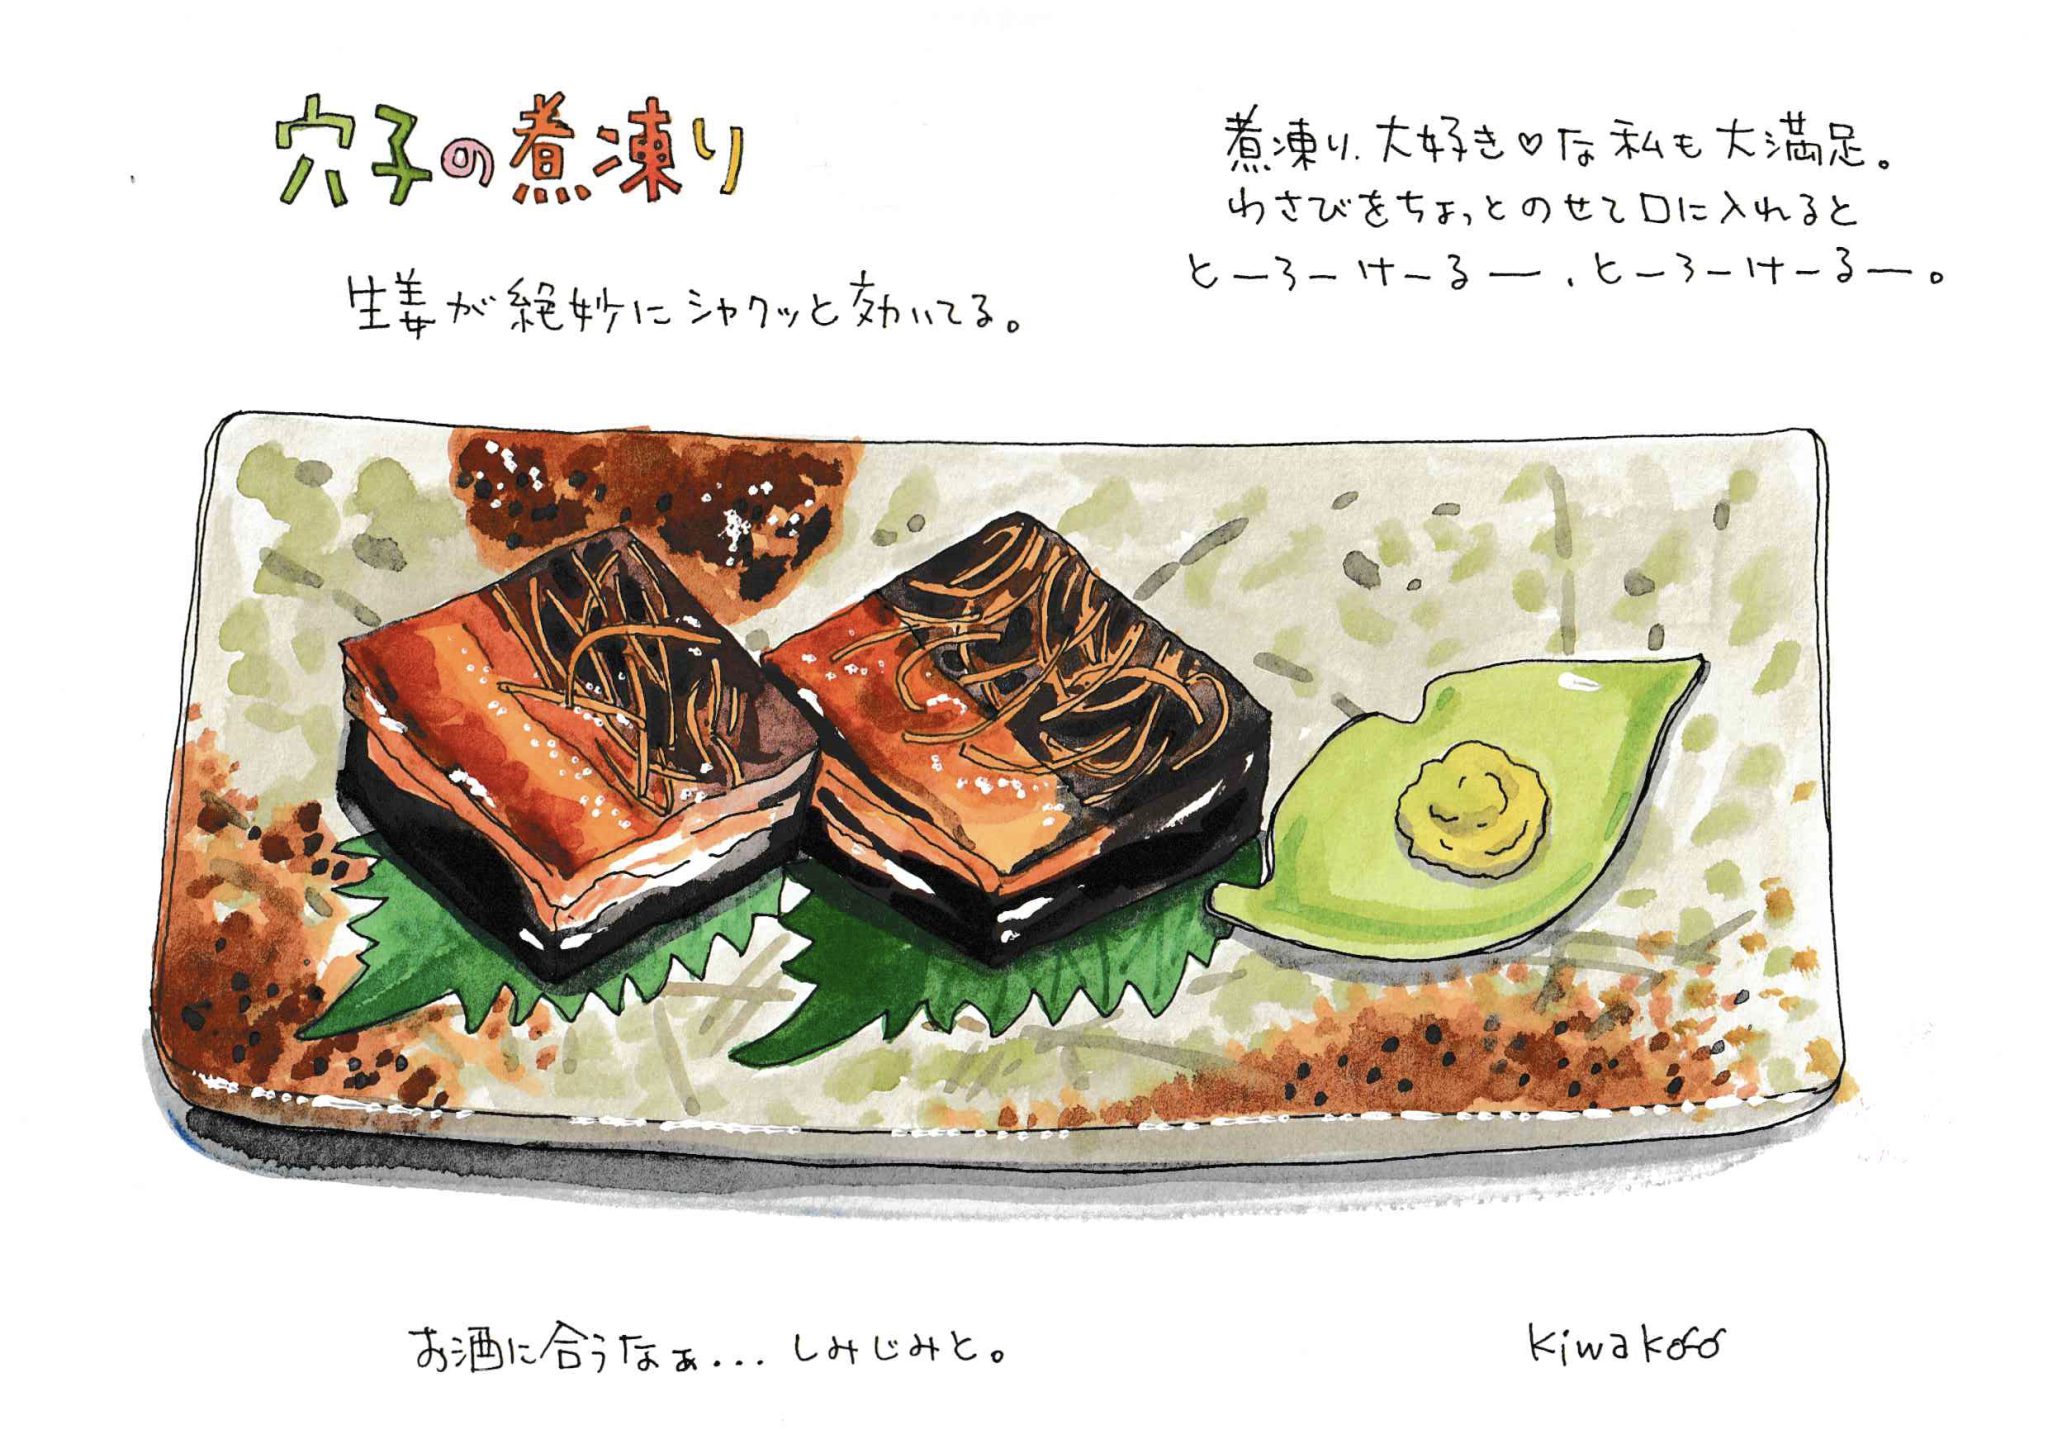 穴子の煮凍り
生姜が絶妙にシャクッと効いてる。
煮凍り、大好き♡な私も大満足。
わさびをちょっとのせて口に入れると
とーろーけーるー、とーろーけーるー。
お酒に合うなぁ...しみじみと。
kiwako